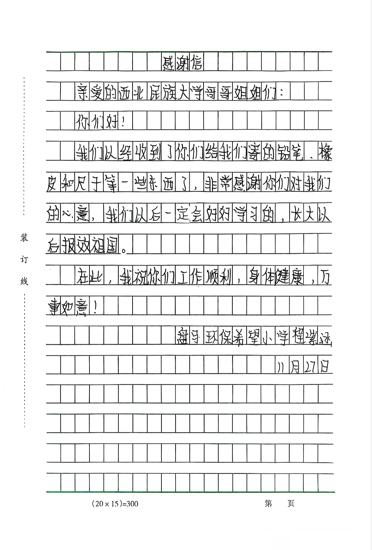 感谢信
亲爱的西北民族大学哥哥姐姐们：
你们好！
我们以经收到了你们给我们寄的铅笔、橡
皮和尺子等一些东西了，非常感谢你们对我们
的心意，我们以后一定会好好学习的，长大以
后报效祖国。
在此，我祝你们工作顺利，身体健康，万
事如意！
环保希望小学程
11月27日
装订线
(20×15)=300
第 页